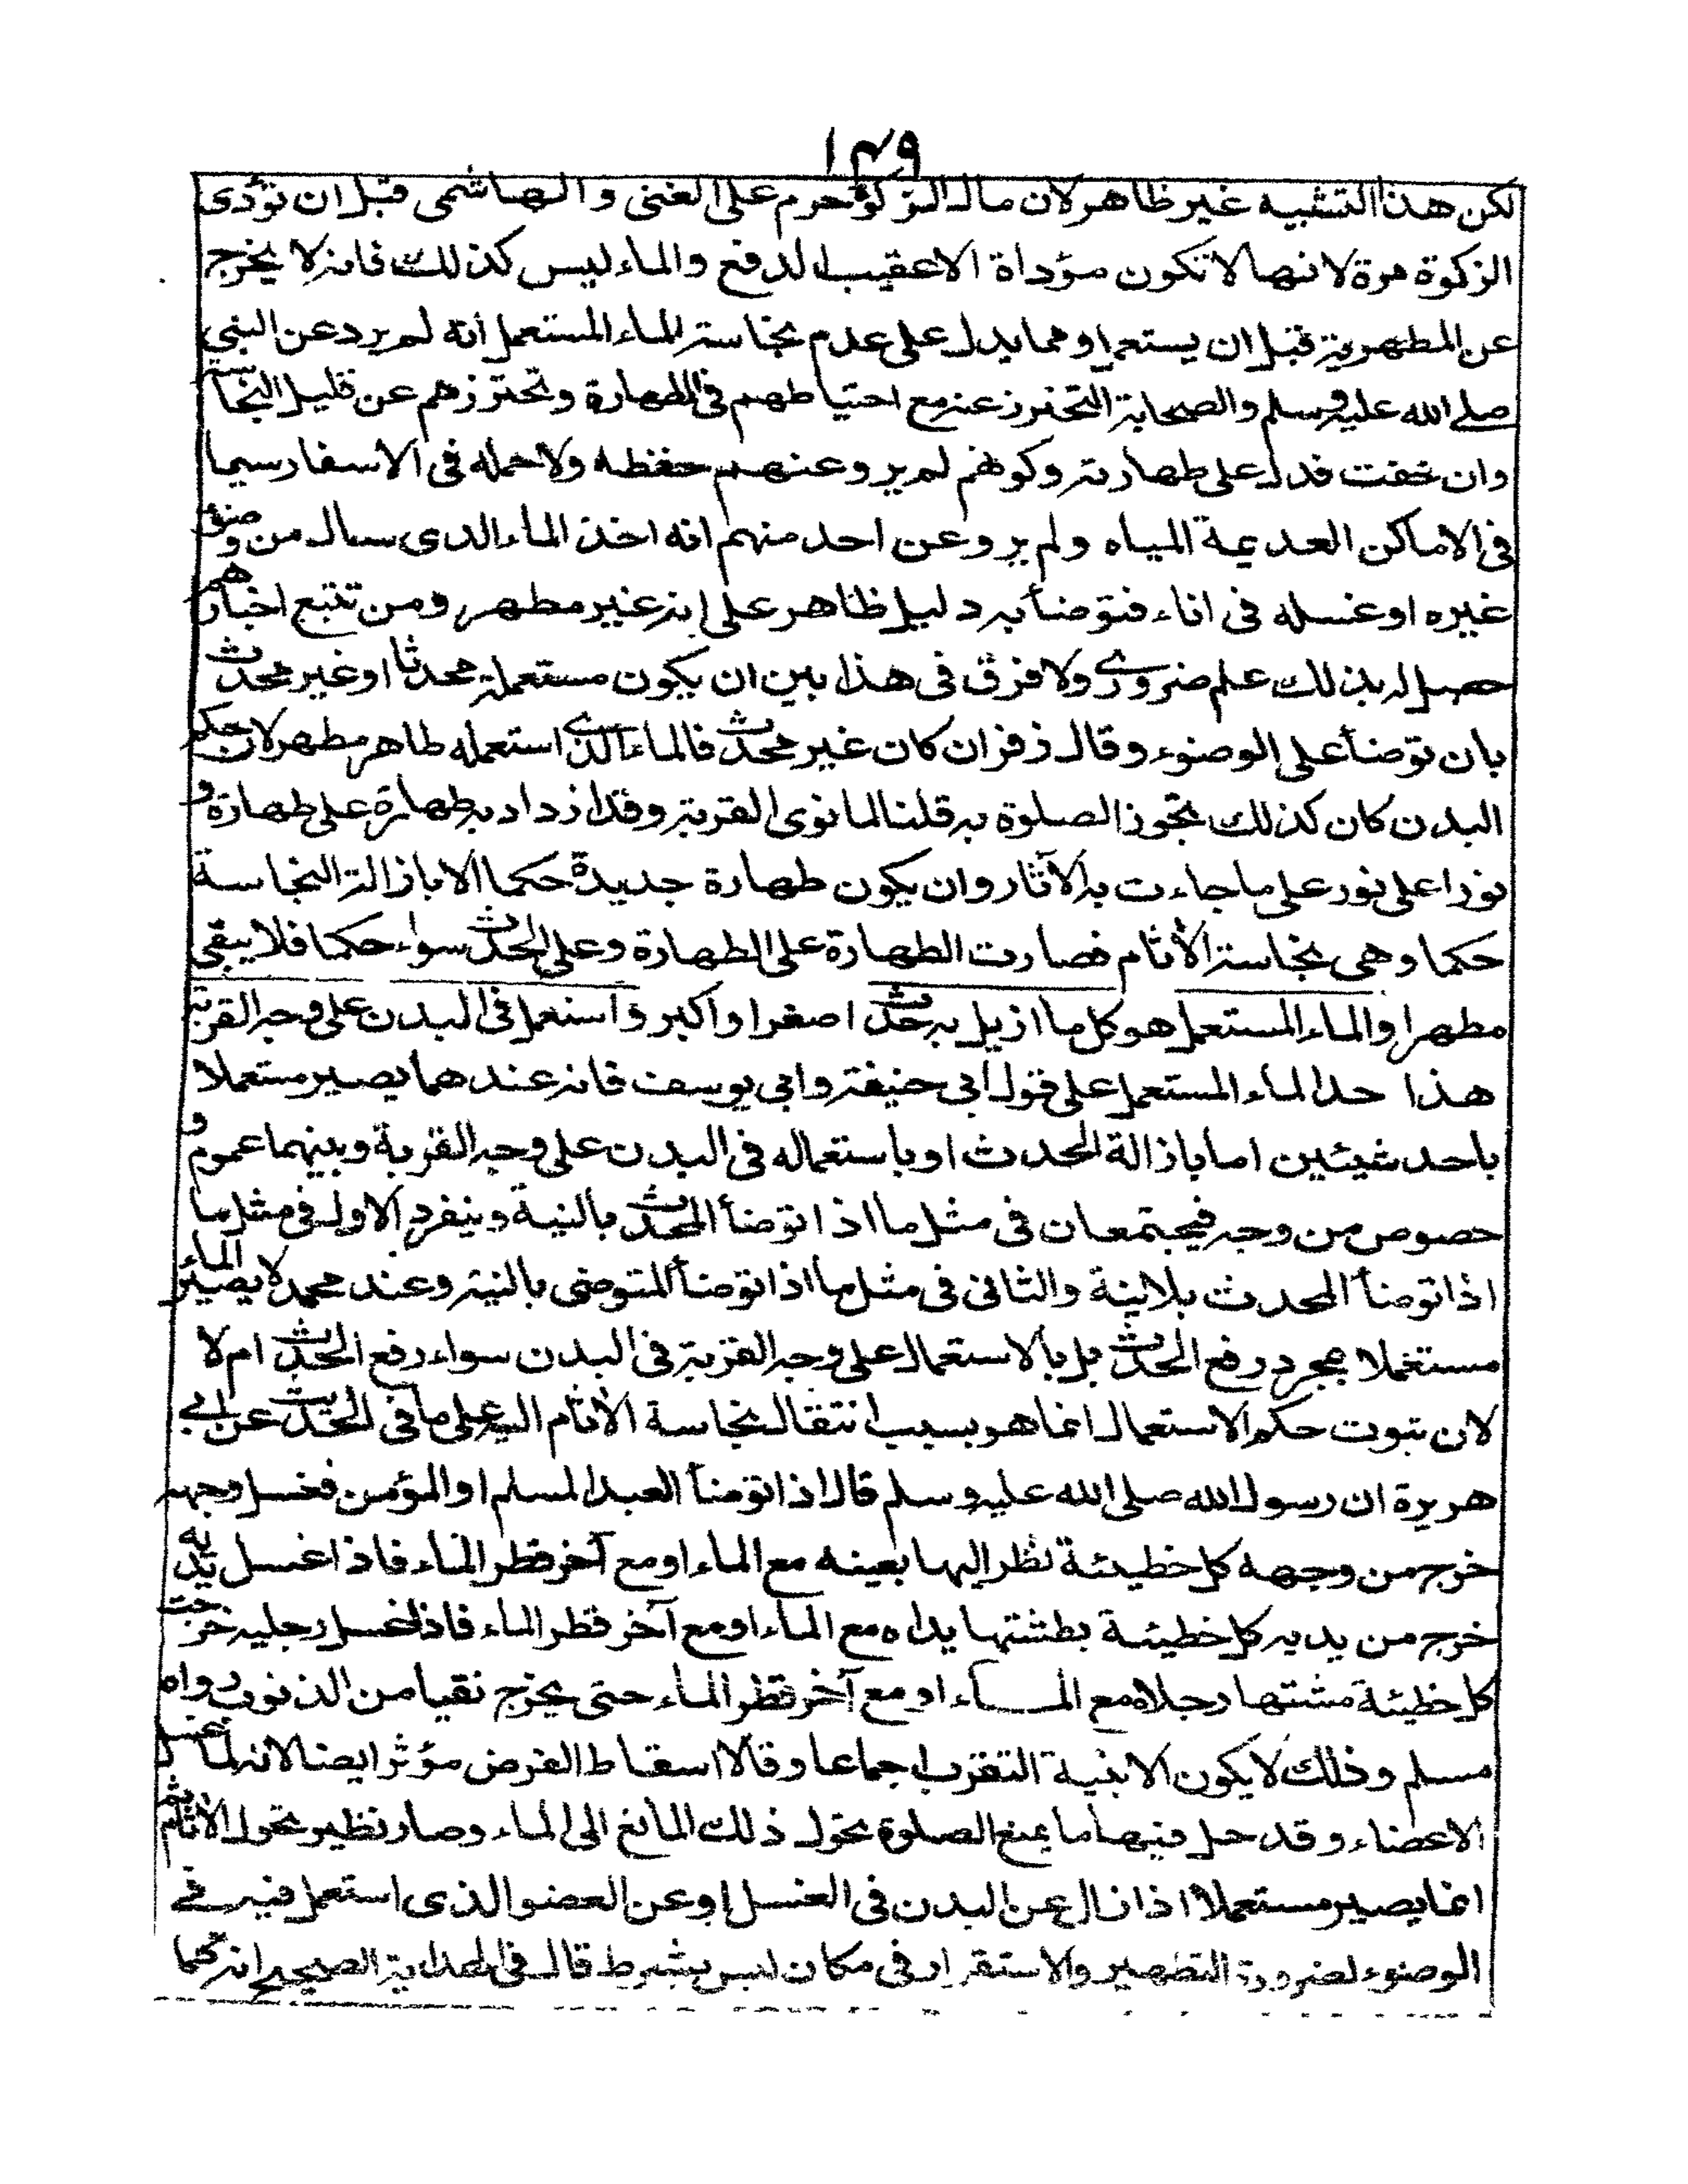 ١٤٩
لكن هذا التشبيه غير ظاهر لان مال الزكوة حرم على الغنى والهاشمى قبل ان تؤدى
الزكوة مرة لانها لا تكون مؤداة الا عقيب الدفع والماء ليس كذلك فانه لا يخرج
عن المطهرية قبل ان يستعمل ومما يدل على عدم نجاسة الماء المستعمل انه لم يرد عن النبي
صلى الله عليه وسلم والصحابة التحرز عنه مع احتياطهم فى الطهارة وتحترزهم عن قليل النجاسة
وان خفت فدل على طهارته وكونهم لم يرو عنهم حفظه ولا حمله فى الاسفار سيما
فى الاماكن العديمة المياه ولم يرو عن احد منهم انه اخذ الماء الذى سال من وضوء
غيره او غسله فى اناء فتوضأ به دليل ظاهر على انه غير مطهر ومن تتبع اخبارهم
حصل له بذلك علم ضرورى ولا فرق فى هذا بين ان يكون مستعمله محدثا او غير محدث
بان توضأ على الوضوء وقال زفر ان كان غير محدث فالماء الذى استعمله طاهر مطهر لان حكم
البدن كان كذلك تجوز الصلوة به قلنا لما نوى القربة وقد ازداد به طهارة على طهارة و
نورا على نور على ما جاءت به الآثار وان يكون طهارة جديدة حكما الا بازالة النجاسة
حكما وهى نجاسة الأثام فصارت الطهارة على الطهارة وعلى الحدث سواء حكما فلا يبقى
مطهرا والماء المستعمل هو كل ما ازيل به حدث اصغر او اكبر واستعمل فى البدن على وجه القربة
هذا حد الماء المستعمل على قول ابى حنيفة وابى يوسف فانه عندهما يصير مستعملا
باحد شيئين اما بازالة الحدث او باستعماله فى البدن على وجه القربة وبينهما عموم و
خصوص من وجه فيجتمعان فى مثل ما اذا توضأ المحدث بالنية وينفرد الاول فى مثل ما
اذا توضأ المحدث بلانية والثانى فى مثل ما اذا توضأ المتوضى بالنية وعند محمد لا يصير الماء
مستعملا بمجرد رفع الحدث بل بالاستعمال على وجه القربة فى البدن سواء رفع الحدث ام لا
لان ثبوت حكم الاستعمال انما هو بسبب انتقال نجاسة الأثام اليه على ما فى الحديث عن ابى
هريرة ان رسول الله صلى الله عليه وسلم قال اذا توضأ العبد المسلم او المؤمن فغسل وجهه
خرج من وجهه كل خطيئة نظر اليها بعينه مع الماء او مع آخر قطر الماء فاذا غسل يديه
خرج من يديه كل خطيئة بطشتها يداه مع الماء او مع آخر قطر الماء فاذا غسل رجليه خرجت
كل خطيئة مشتها رجلاه مع الماء او مع آخر قطر الماء حتى يخرج نقيا من الذنوب رواه
مسلم وذلك لا يكون الا بنية التقرب اجماعا وقالا اسقاط الفرض مؤثر ايضا لانه لما غسل
الاعضاء وقد حل فيها ما يمنع الصلوة تحول ذلك المانع الى الماء وصار نظير تحول الأثام ثم
انما يصير مستعملا اذا زال عن البدن فى الغسل او عن العضو الذى استعمل فيه فى
الوضوء لضرورة التطهير والاستقرار فى مكان ليس بشرط قال فى الهداية الصحيح انه كما